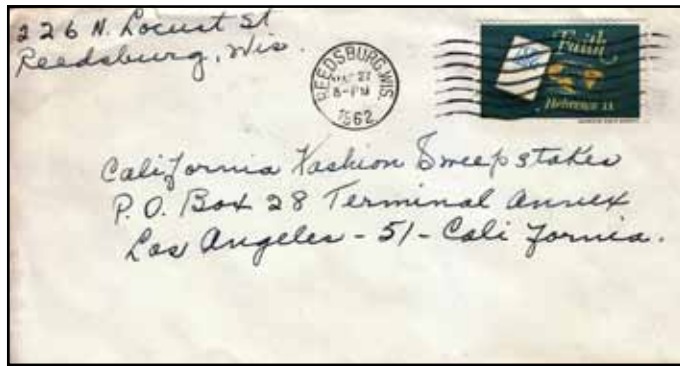 226 N. Locust St
Reedsburg, Wis.
REEDSBURG, WIS.
27
8-PM
1962
Faith
Hebrews 11
California Fashion Sweepstakes
P.O. Box 28 Terminal Annex
Los Angeles - 51 - California.